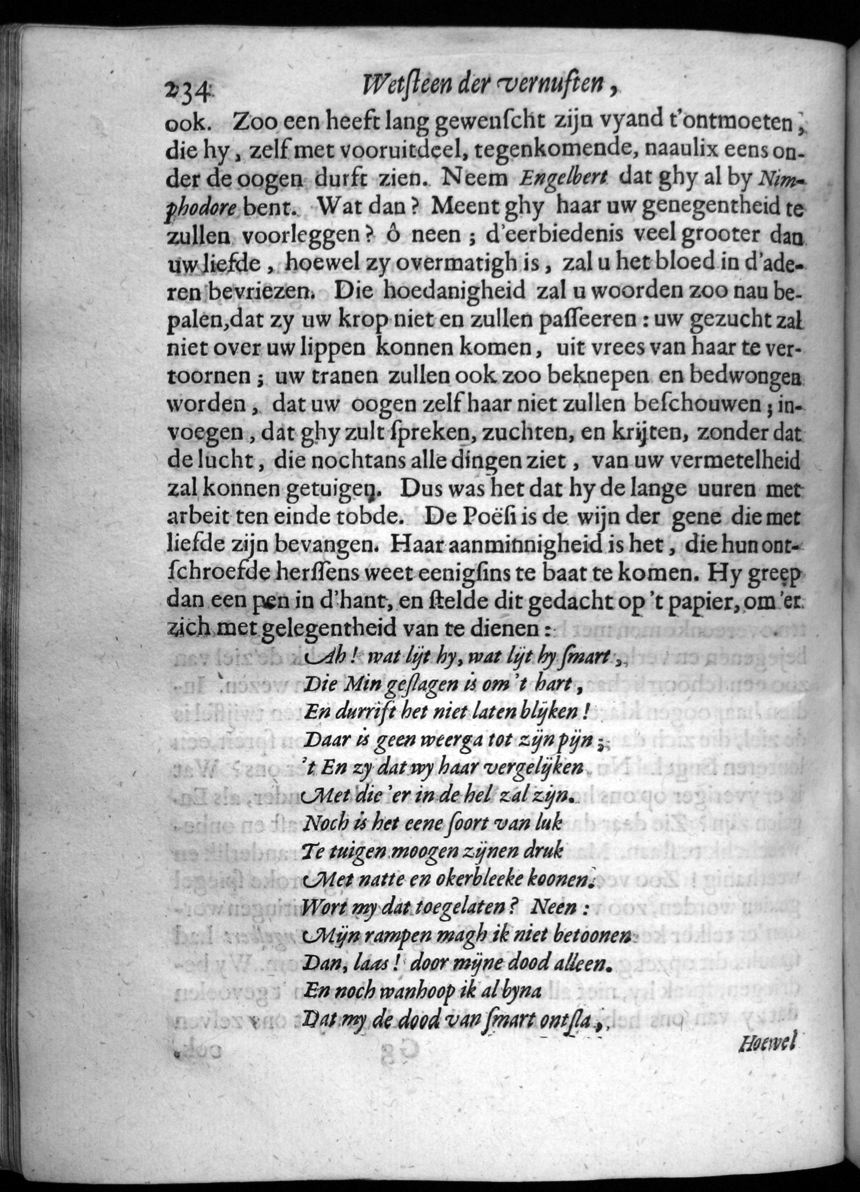 234 Wetſteen der vernuften,
ook. Zoo een heeft lang gewenſcht zijn vyand t'ontmoeten,
die hy, zelf met vooruitdeel, tegenkomende, naaulix eens on-
der de oogen durft zien. Neem Engelbert dat ghy al by Nim-
phodore bent. Wat dan? Meent ghy haar uw genegentheid te
zullen voorleggen? ô neen; d'eerbiedenis veel grooter dan
uw liefde, hoewel zy overmatigh is, zal u het bloed in d'ade-
ren bevriezen. Die hoedanigheid zal u woorden zoo nau be-
palen,dat zy uw krop niet en zullen paſſeeren: uw gezucht zal
niet over uw lippen konnen komen, uit vrees van haar te ver-
toornen; uw tranen zullen ook zoo beknepen en bedwongen
worden, dat uw oogen zelf haar niet zullen beſchouwen; in-
voegen, dat ghy zult ſpreken, zuchten, en krijten, zonder dat
de lucht, die nochtans alle dingen ziet, van uw vermetelheid
zal konnen getuigen. Dus was het dat hy de lange uuren met
arbeit ten einde tobde. De Poëſi is de wijn der gene die met
liefde zijn bevangen. Haar aanminnigheid is het, die hun ont-
ſchroefde herſſens weet eenigſins te baat te komen. Hy greep
dan een pen in d'hant, en ſtelde dit gedacht op 't papier, om 'er
zich met gelegentheid van te dienen:
Ah! wat lijt hy, wat lijt hy ſmart,
Die Min geſlagen is om 't hart,
En durrift het niet laten blijken!
Daar is geen weerga tot zijn pijn;
't En zy dat wy haar vergelijken
Met die 'er in de hel zal zijn.
Noch is het eene ſoort van luk
Te tuigen moogen zijnen druk
Met natte en okerbleeke koonen.
Wort my dat toegelaten? Neen:
Mijn rampen magh ik niet betoonen
Dan, laas! door mijne dood alleen.
En noch wanhoop ik al byna
Dat my de dood van ſmart ontſla,
Hoewel